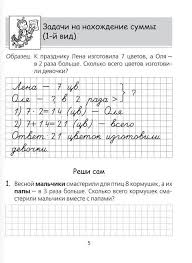 Задачи на нахождение суммы
(1-й вид)
Образец. К празднику Лена изготовила 7 цветов, а Оля –
в 2 раза больше. Сколько всего цветов изготови-
ли девочки?
Лена – 7 цв.
Оля – ? в 2 раза >
?
1) 7 · 2 = 14 (цв.) – Оля
2) 7 + 14 = 21 (цв.) – всего
Ответ: 21 цветок изготовили
девочки.
Реши сам
1. Весной мальчики смастерили для птиц 8 кормушек, а их
папы – в 3 раза больше. Сколько всего кормушек сма-
стерили мальчики вместе с папами?
5